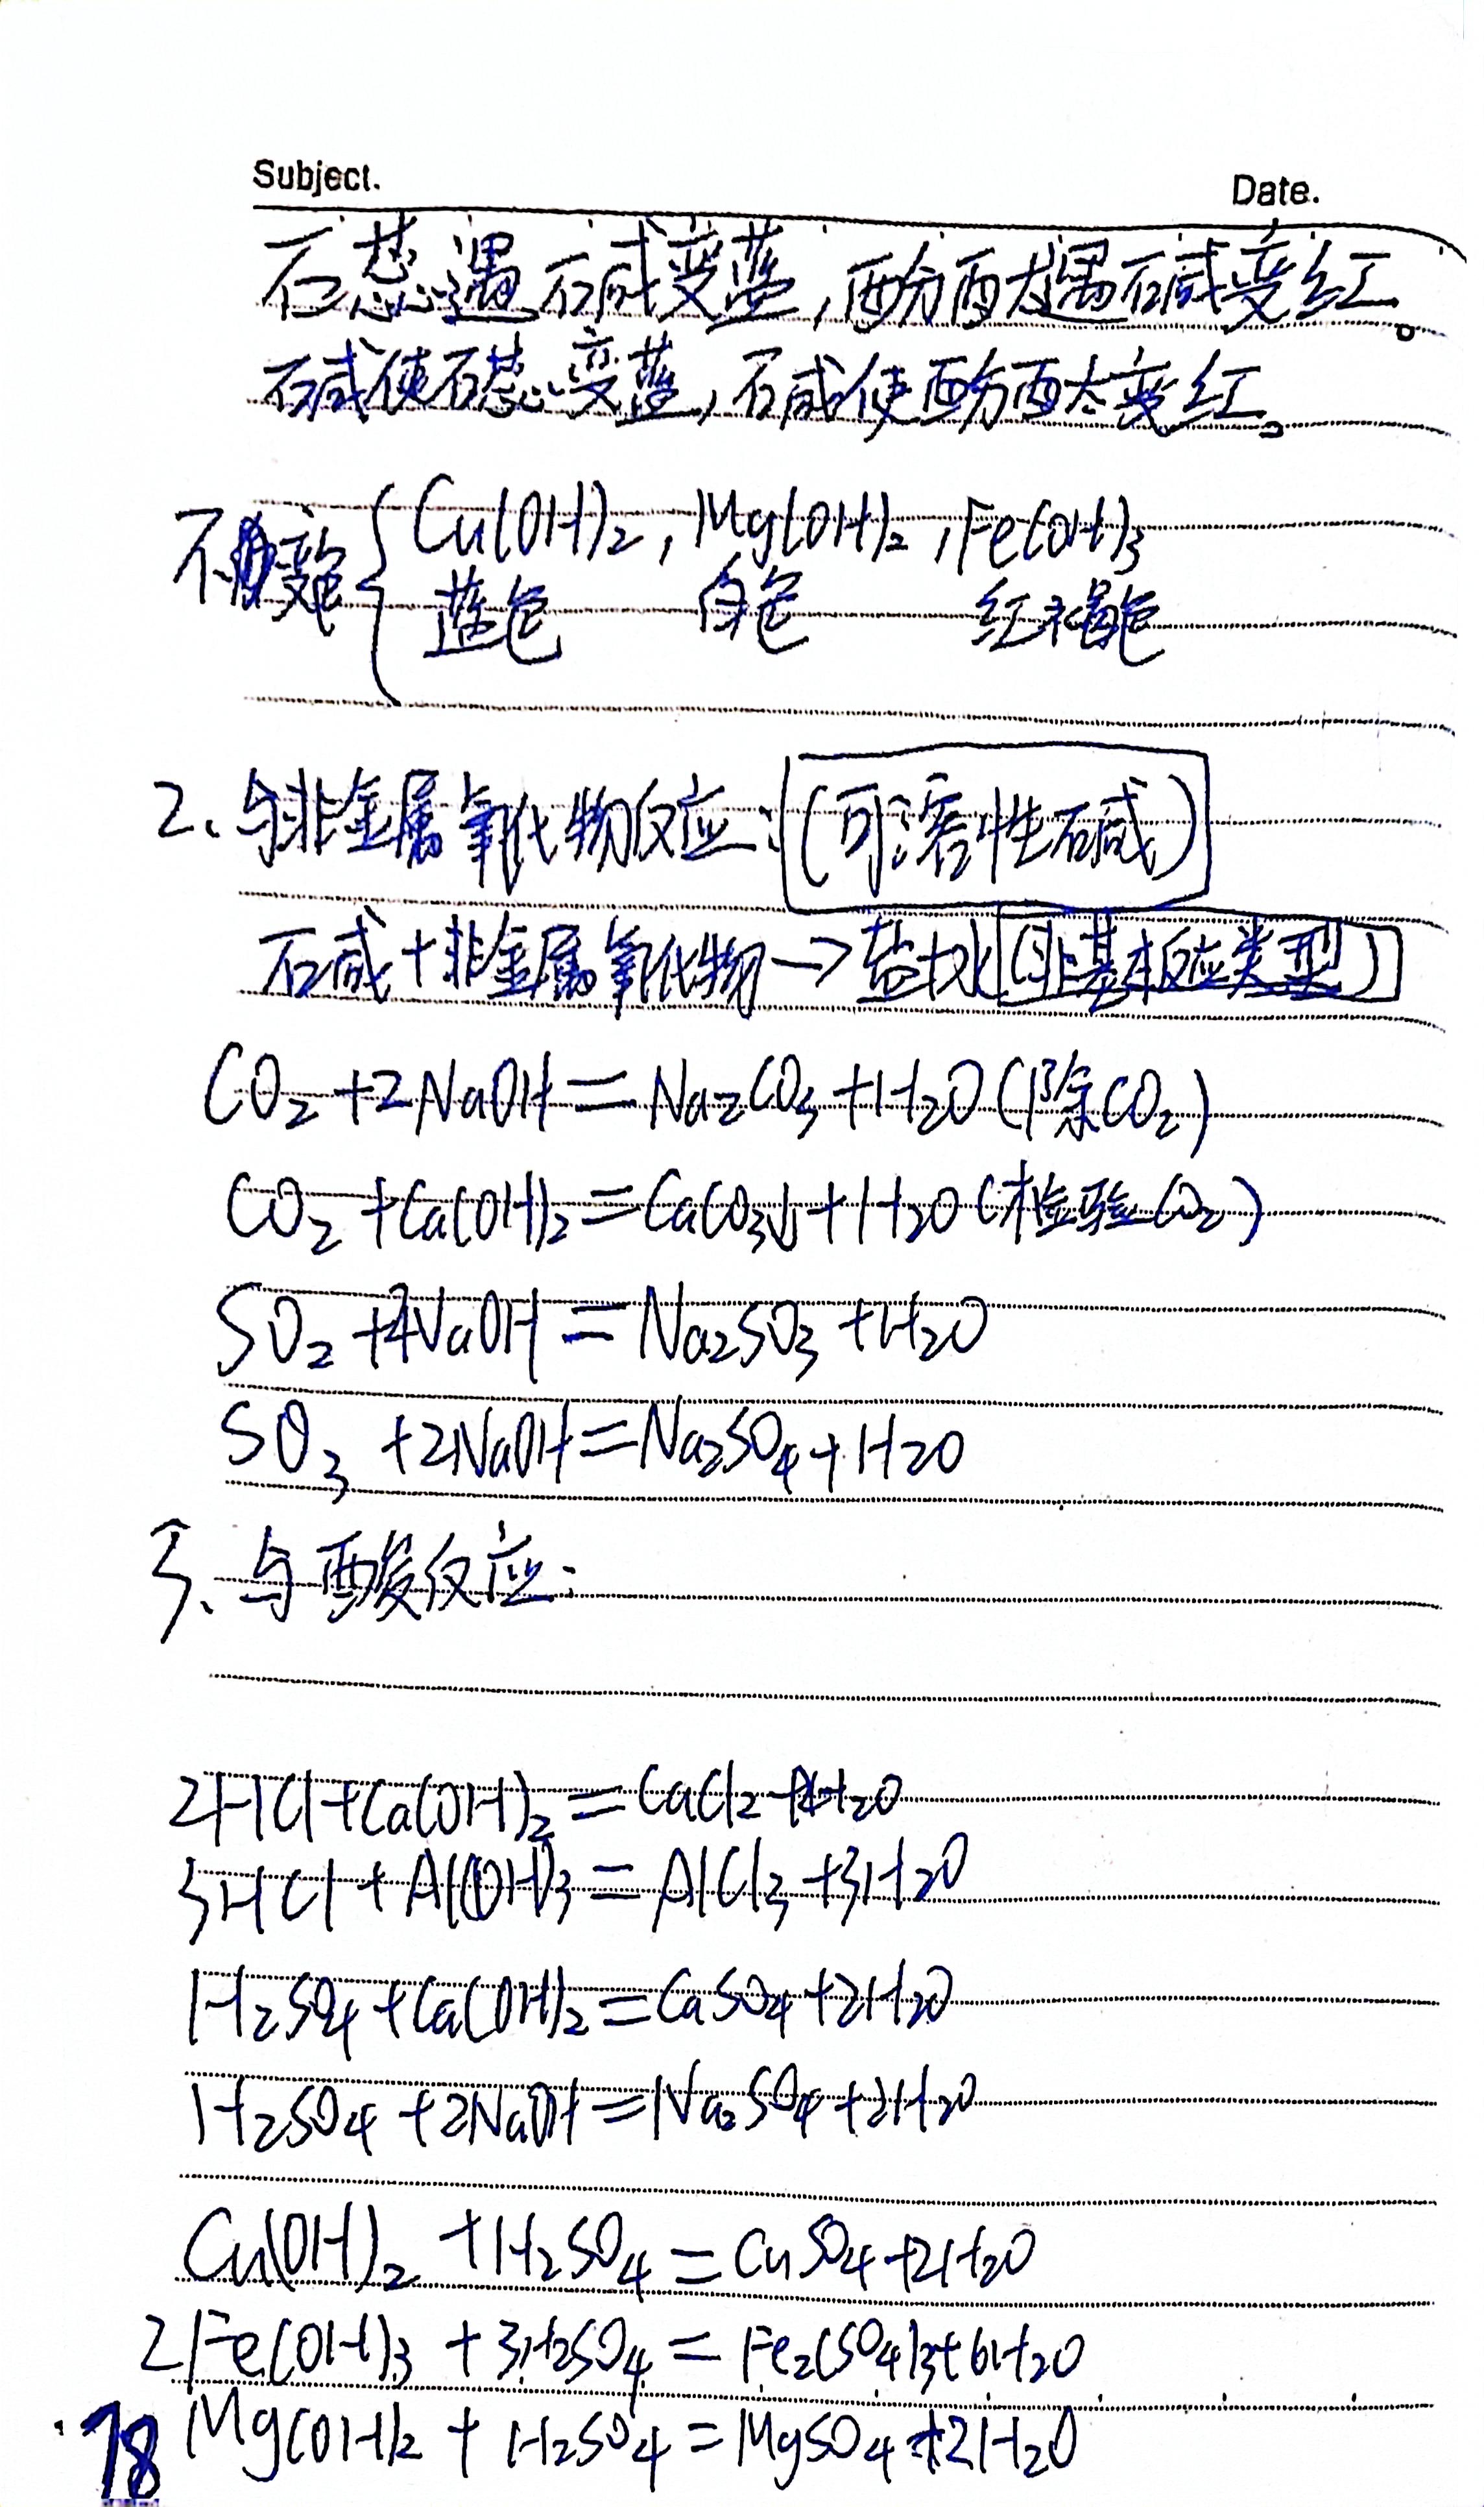 Subject. Date.
石蕊遇碱变蓝,酚酉太遇碱变红。
碱使石蕊变蓝,碱使酚酉太变红。
不变色 Cu(OH)₂, Mg(OH)₂, Fe(OH)₃
蓝色 白色 红褐色
2、与非金属氧化物反应:(可溶性碱)
碱+非金属氧化物→盐+水(非基本反应类型)
CO₂+2NaOH=Na₂CO₃+H₂O(除CO₂)
CO₂+Ca(OH)₂=CaCO₃↓+H₂O(检验CO₂)
SO₂+2NaOH=Na₂SO₃+H₂O
SO₃+2NaOH=Na₂SO₄+H₂O
3、与酸反应:
2HCl+Ca(OH)₂=CaCl₂+2H₂O
3HCl+Al(OH)₃=AlCl₃+3H₂O
H₂SO₄+Ca(OH)₂=CaSO₄+2H₂O
H₂SO₄+2NaOH=Na₂SO₄+2H₂O
Cu(OH)₂+H₂SO₄=CuSO₄+2H₂O
2Fe(OH)₃+3H₂SO₄=Fe₂(SO₄)₃+6H₂O
Mg(OH)₂+H₂SO₄=MgSO₄+2H₂O
78